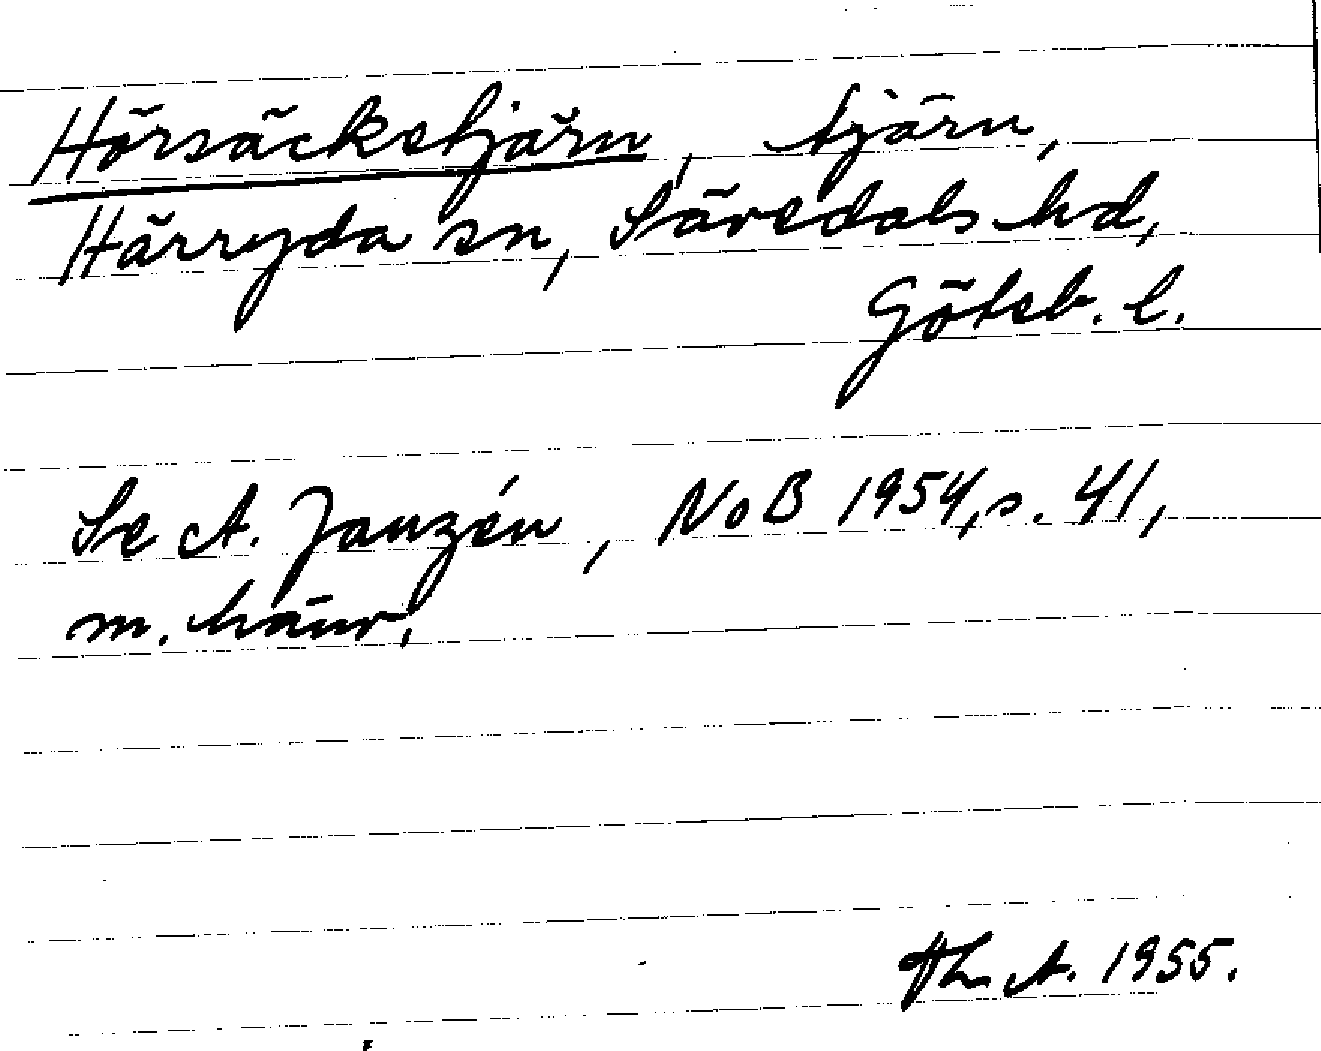 Hörsäckstjärn, tjärn,
Härryda sn, Sävedals hd,
Göteb. l.
Se A. Janzén, NoB 1954, s. 41,
m. hänv.
Th. A. 1955.